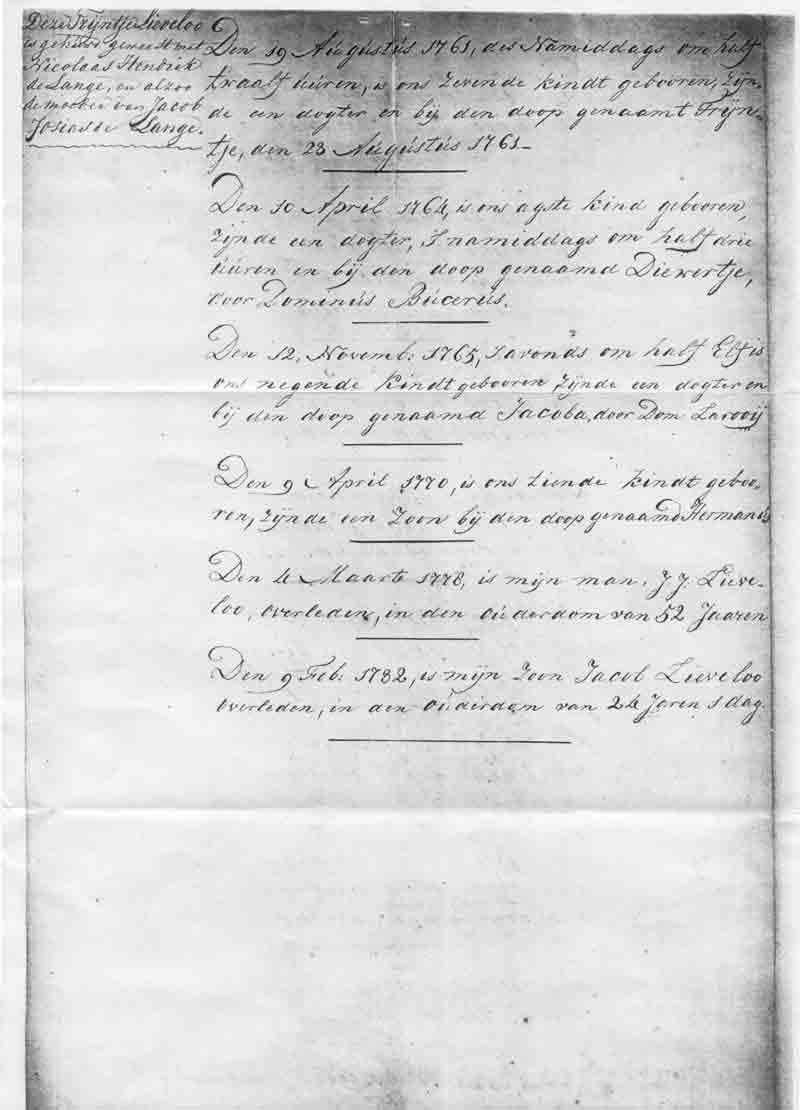 Deze Trijntje Lieveloo
is gehuwd geweest met
Nicolaas Hendrik
de Lange, en alzoo
de moeder van Jacob
Josias de Lange.
Den 19 Augustus 1761, des Namiddags om half
twaalf uuren, is ons zevende kindt gebooren, zijn-
de een dogter en bij den doop genaamt Trijn-
tje, den 23 Augustus 1761-
Den 10 April 1764, is ons agste kind gebooren,
zijnde een dogter, S namiddags om half drie
uuren en bij den doop genaamd Diewertje,
door Dominus Bucerus.
Den 12, Novemb: 1765, S avonds om half Elf is
ons negende kindt gebooren zijnde een dogter en
bij den doop genaamd Jacoba, door Dom Larooij
Den 9 April 1770, is ons tiende kindt geboo-
ren, zijnde een Zoon bij den doop genaamd Hermanus
Den 4 Maarte 1778, is mijn man, J J: Lieve-
loo, overleden, in den ouderdom van 52 Jaaren
Den 9 Feb: 1782, is mijn Zoon Jacob Lieveloo
overleden, in den ouderdom van 24 Jaren 1 dag.